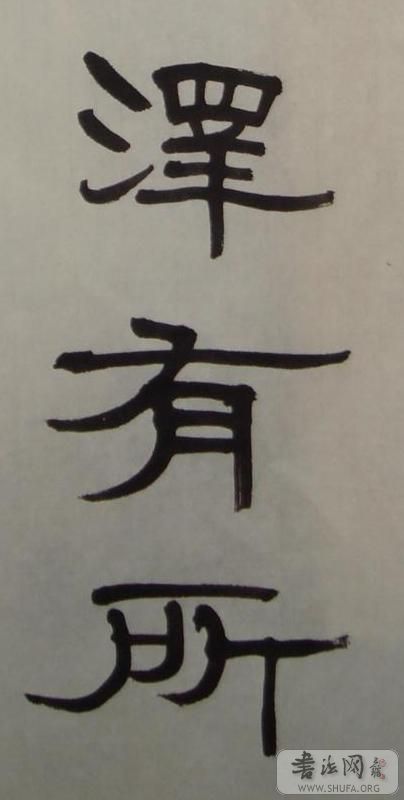 澤有所
书法网
WWW.SHUFA.ORG